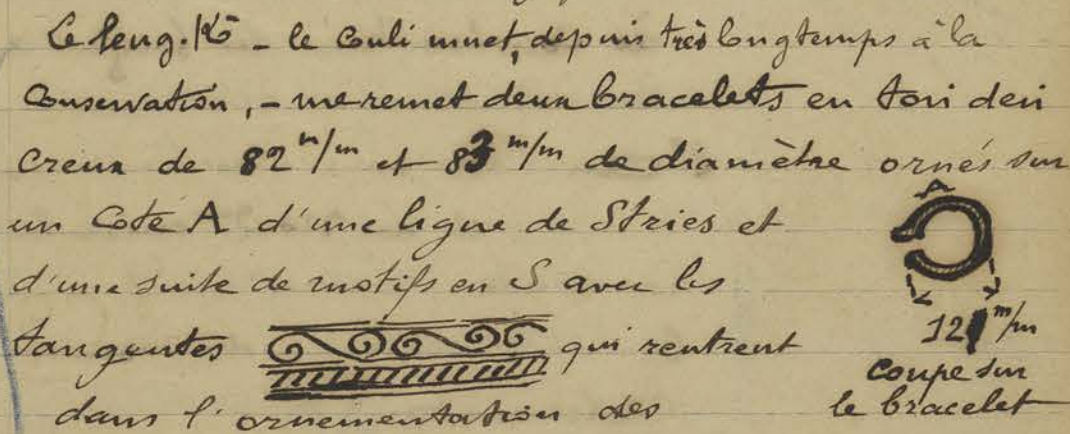 Le Leng. Kŏ - le couli muet, depuis très longtemps à la
Conservation, - me remet deux bracelets en
creux de 82 m/m et 83 m/m de diamètre ornés sur
un Coté A d'une ligne de Stries et
d'une suite de motifs en S avec les
tangentes qui rentrent
dans l'ornementation des
A
12 m/m
coupe sur
le bracelet